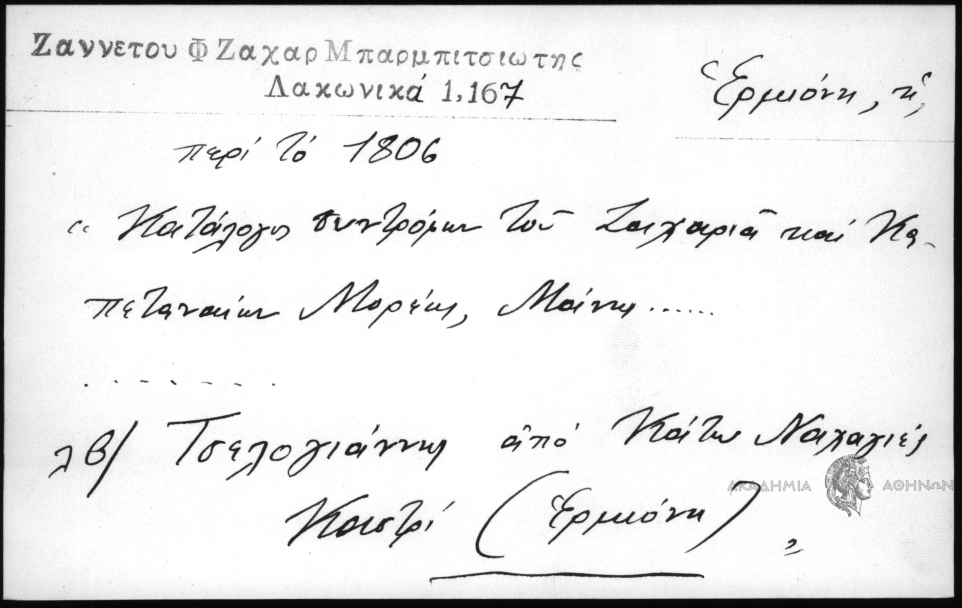 Ζαννετου Φ Ζαχαρ Μπαρμπιτσιωτης
Λακωνικά 1,167
Ἑρμιόνη, ἡ,
περί τό 1806
“ Κατάλογος συντρόφων τοῦ Ζαχαριᾶ καί Κα-
πεταναίων Μορέως, Μάνης ......
. . . . . . . . .
λβ/ Τσελογιάννης ἀπό Κάτω Ναχαγιές
Καστρί (Ἑρμιόνη) „
ΑΚΑΔΗΜΙΑ ΑΘΗΝΩΝ